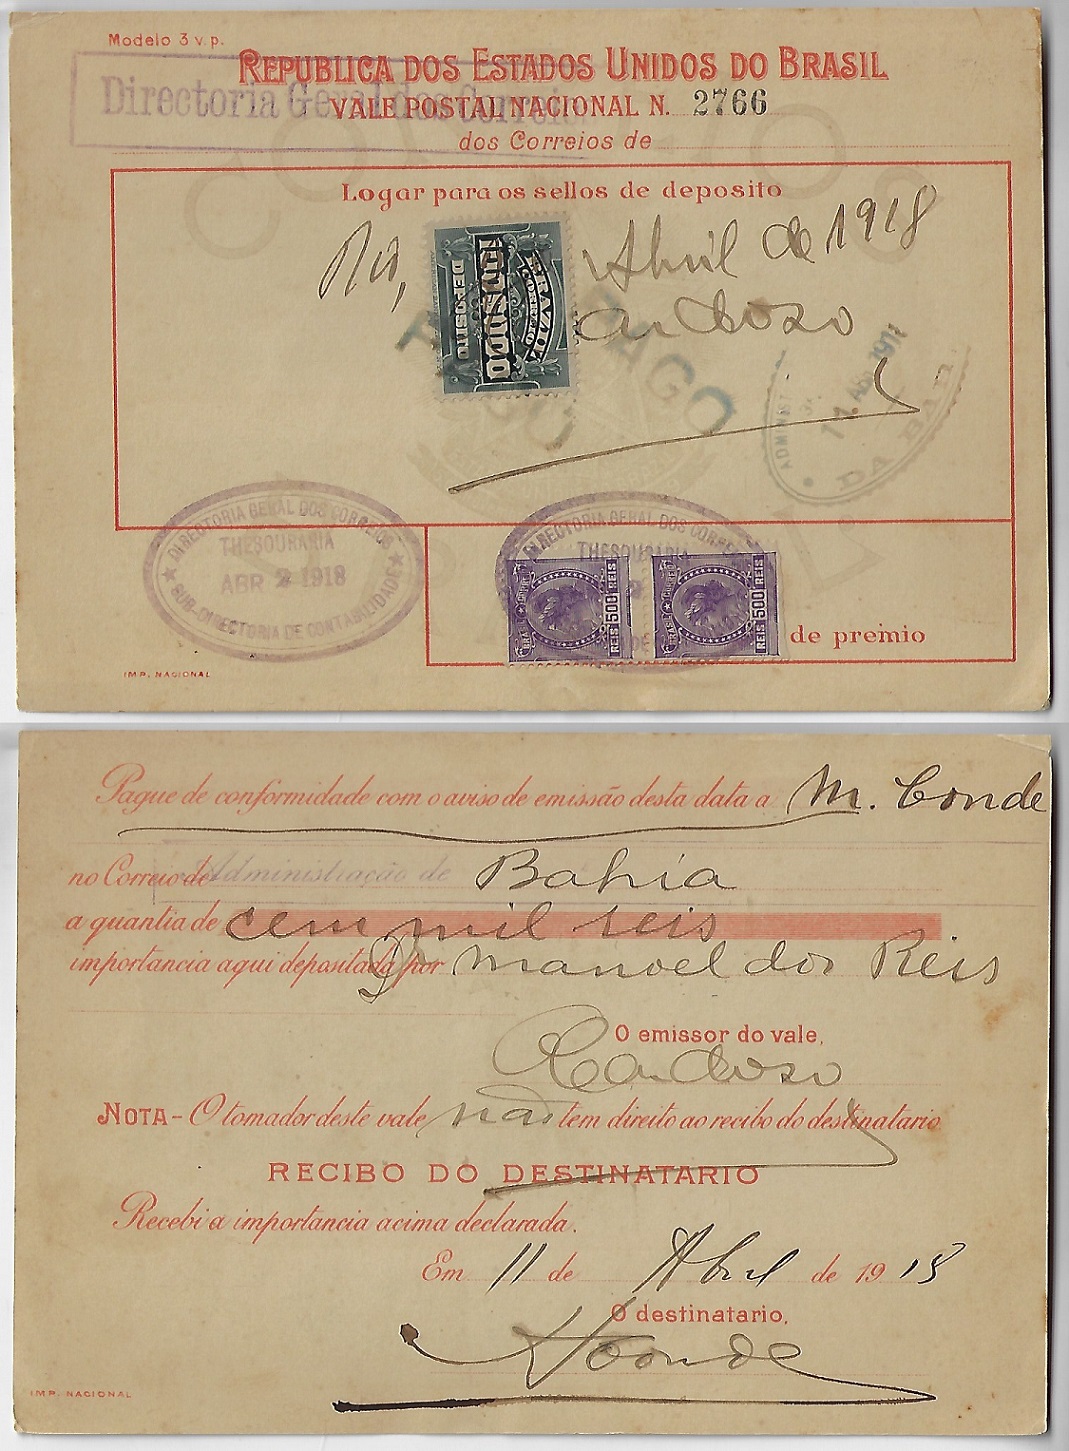 Modelo 3 v. p.
REPUBLICA DOS ESTADOS UNIDOS DO BRASIL
Directoria Geral dos Correios
VALE POSTAL NACIONAL N. 2766
dos Correios de
CORREIOS
Logar para os sellos de deposito
Rio, Abril de 1918
DEPOSITO
PAGO
Cardoso
ADMINIST
11 ABR 191
DA BAH
DIRECTORIA GERAL DOS CORREIOS
THESOURARIA
ABR 2 1918
SUB-DIRECTORIA DE CONTABILIDADE
DIRECTORIA GERAL DOS CORREIOS
THESOURARIA
BRASIL CORREIO
REIS 500 REIS
BRASIL CORREIO
REIS 500 REIS
de premio
IMP. NACIONAL
Pague de conformidade com o aviso de emissão desta data a M. Conde
no Correio de Administração de Bahia
a quantia de cem mil reis
importancia aqui depositada por Manoel dos Reis
O emissor do vale,
Cardoso
NOTA - O tomador deste vale não tem direito ao recibo do destinatario
RECIBO DO DESTINATARIO
Recebi a importancia acima declarada.
Em 11 de Abril de 1918
O destinatario,
Conde
IMP. NACIONAL